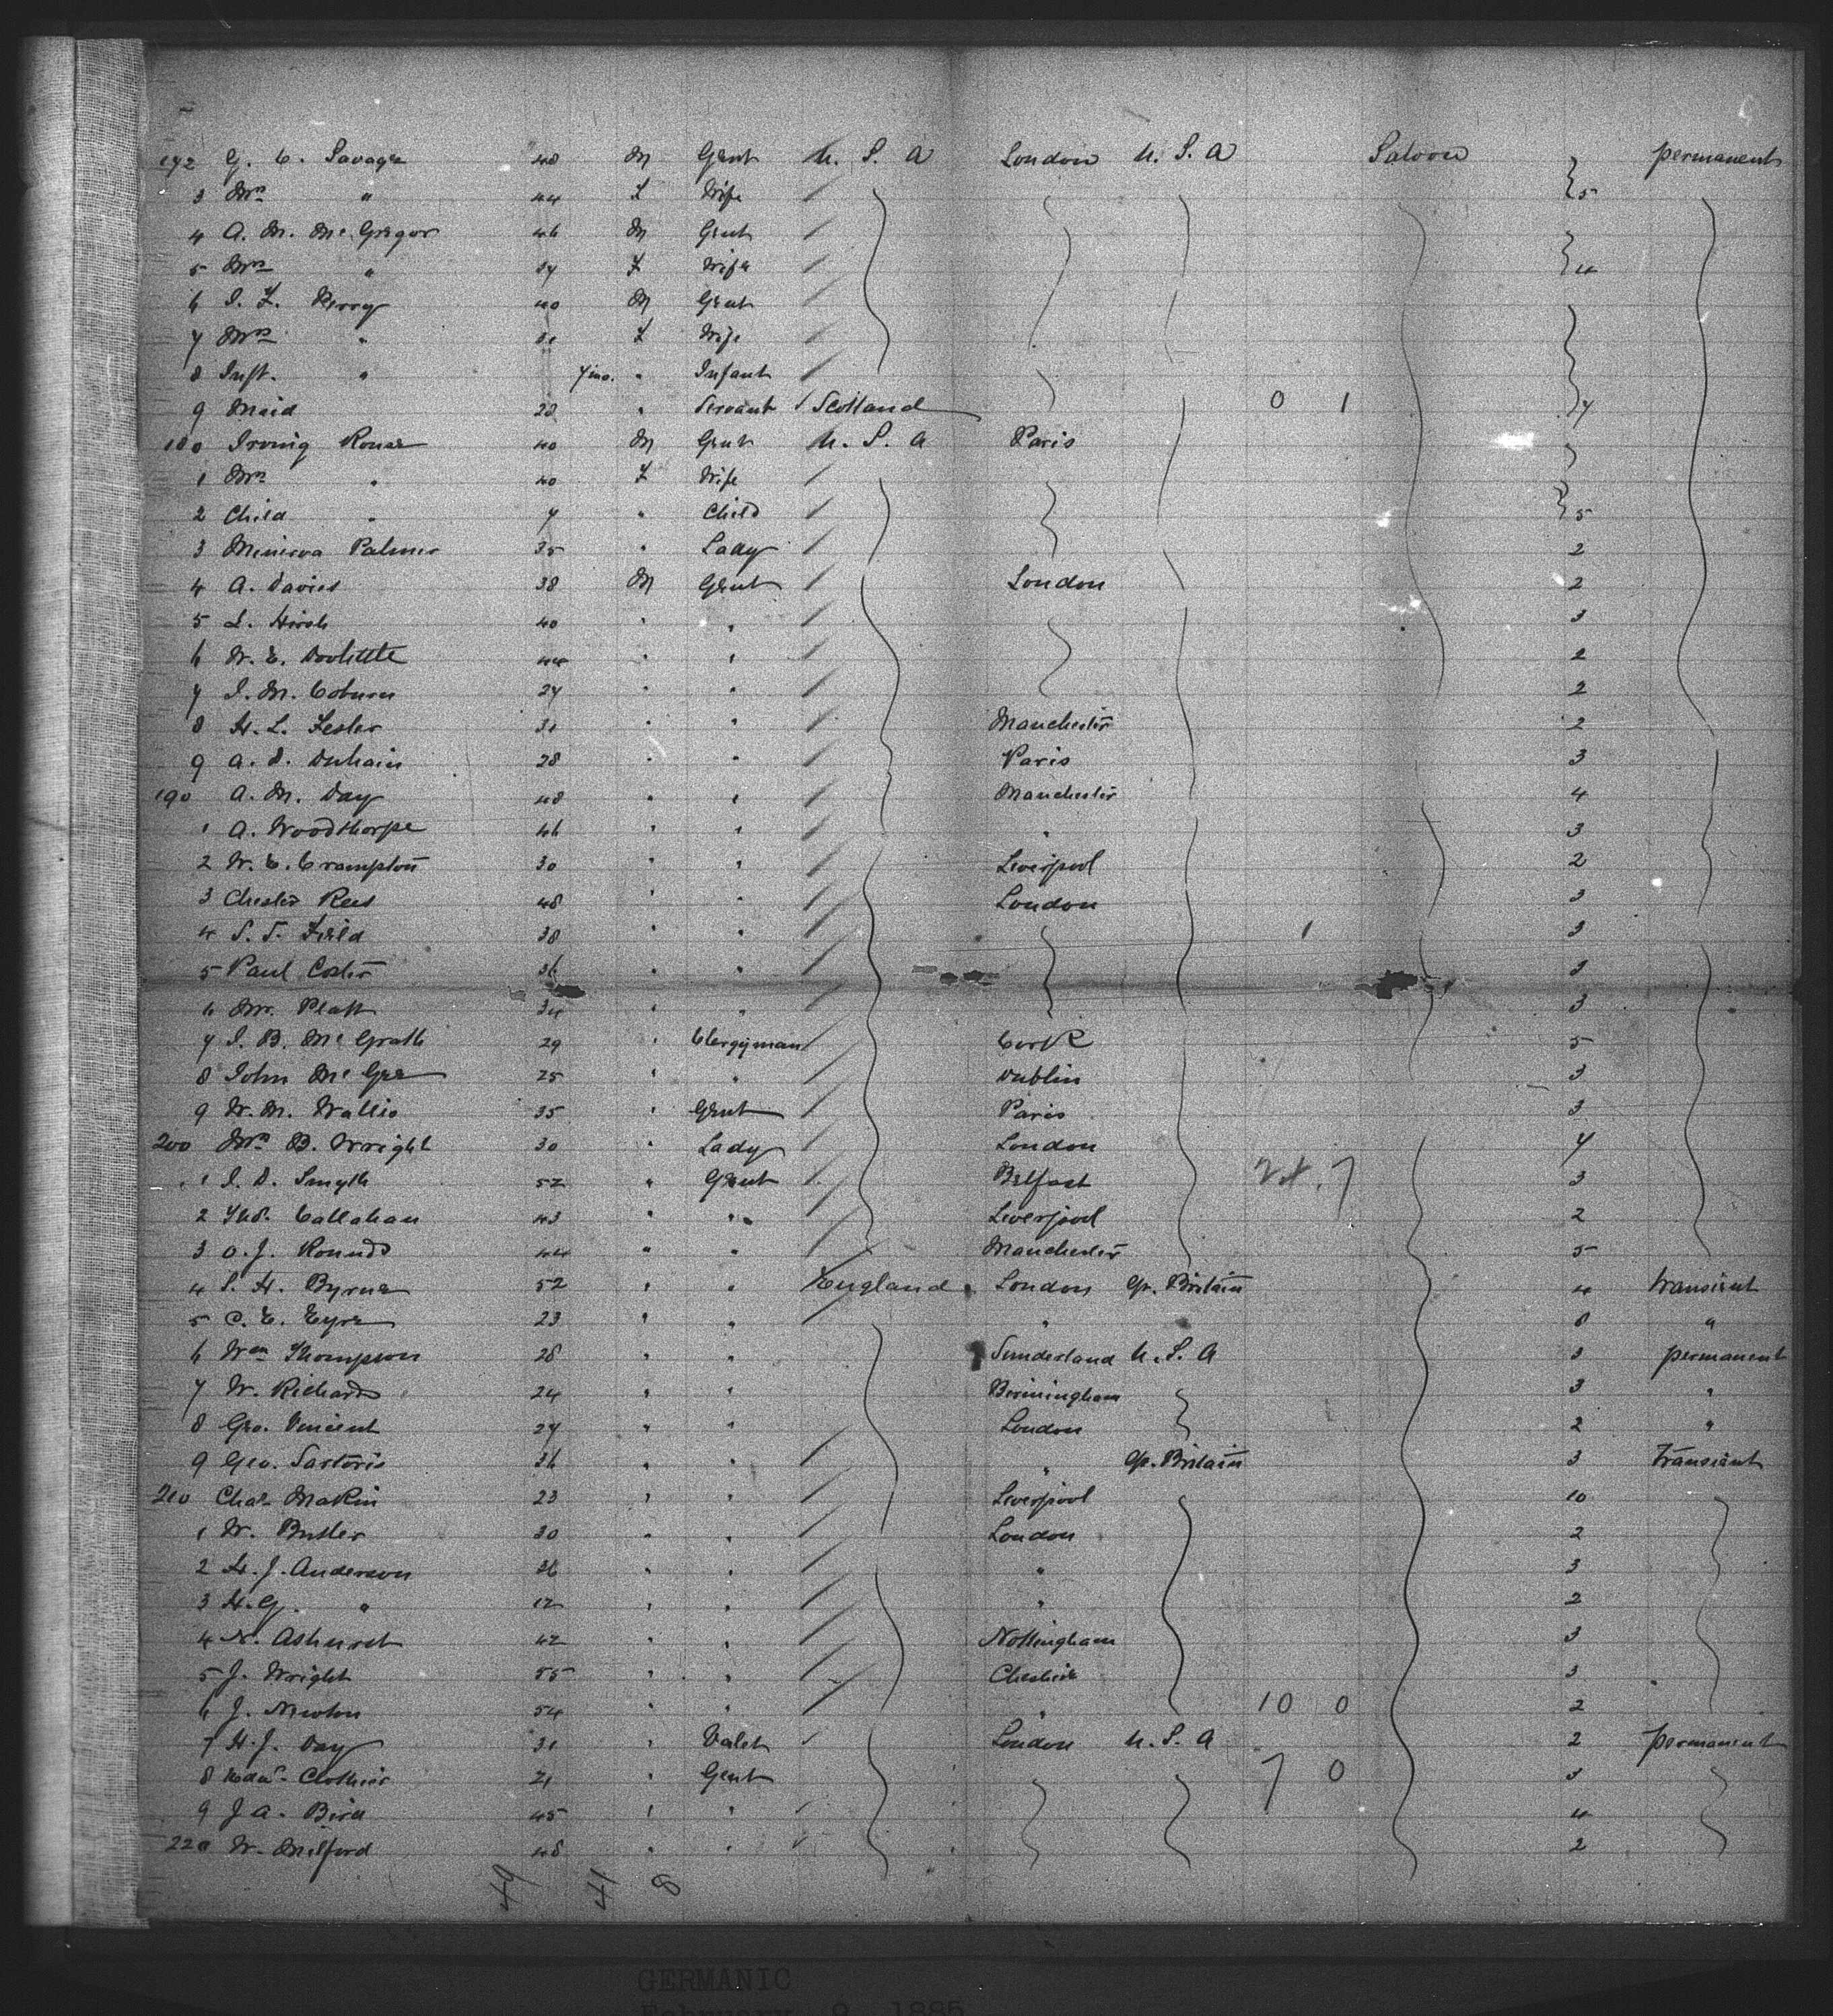 172 G. C. Savage 48 M Gent U. S. A London U. S. A Saloon permanent
3 Mrs " 44 F Wife 5
4 A. M. McGregor 46 M Gent
5 Mrs " 37 F Wife 4
6 I. F. Perry 40 M Gent
7 Mrs " F Wife
8 Inft. " 7 mo. " Infant
9 Maid 28 " Servant Scotland 0 1 7
180 Irving Rouse 40 M Gent U. S. A Paris
1 Mrs " 40 F Wife
2 Child " 7 " Child 5
3 Minerva Palmer 35 " Lady 2
4 A. Davies 38 M Gent London 2
5 L. Hirsh 40 " " 3
6 W. E. Doolittle 44 " " 2
7 I. M. Coburn 27 " " 2
8 H. L. Fesler 31 " " Manchester 2
9 A. S. Duhain 28 " " Paris 3
190 A. M. Day 48 " " Manchester 4
1 A. Woodthorpe 46 " " " 3
2 W. E. Crampton 30 " " Liverpool 2
3 Chester Reed 48 " " London 3
4 S. T. Field 38 " " 3
5 Paul Coster 36 " " 3
6 Mr. Platt 34 " " 3
7 I. B. McGrath 29 " Clergyman Cork 5
8 John McGee 25 " " Dublin 3
9 W. M. Wallis 35 " Gent Paris 3
200 Mrs B. Wright 30 " Lady London 7
1 I. D. Smyth 52 " Gent Belfast 3
2 Thos. Callahan 43 " " Liverpool 2
3 O. J. Rounds 44 " " Manchester 5
4 S. H. Byrne 52 " " England London Gr. Britain 4 transient
5 C. E. Eyre 23 " " " " 8 "
6 Wm Thompson 28 " " Sunderland U. S. A 3 permanent
7 W. Richards 24 " " Birmingham 3 "
8 Geo. Vincent 27 " " London 2 "
9 Geo. Sartoris 36 " " " Gr. Britain 3 transient
210 Chas. Makin 23 " " Liverpool 10
1 W. Butler 30 " " London 2
2 H. J. Anderson 36 " " " 3
3 H. G. " 12 " " " 2
4 N. Ashurst 42 " " Nottingham 3
5 J. Wright 55 " " Cheshire 3
6 J. Newton 54 " " " 10 0 2
7 H. J. Day 31 " Valet London U. S. A 2 permanent
8 Edwd. Clothier 21 " Gent 7 0 3
9 J. A. Bird 45 " " 4
220 W. Milford 48 " " 2
49 41 8
GERMANIC
February 9, 1885